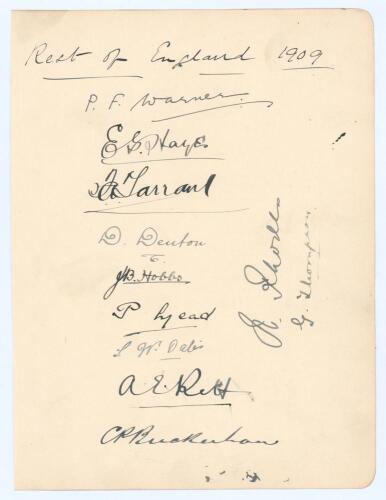 Rest of England 1909
P. F. Warner
E G Hayes
F A Tarrant
D. Denton
J B. Hobbs
P Mead
A. E. Relf
C P Buckenham
W. Rhodes
G. Thompson